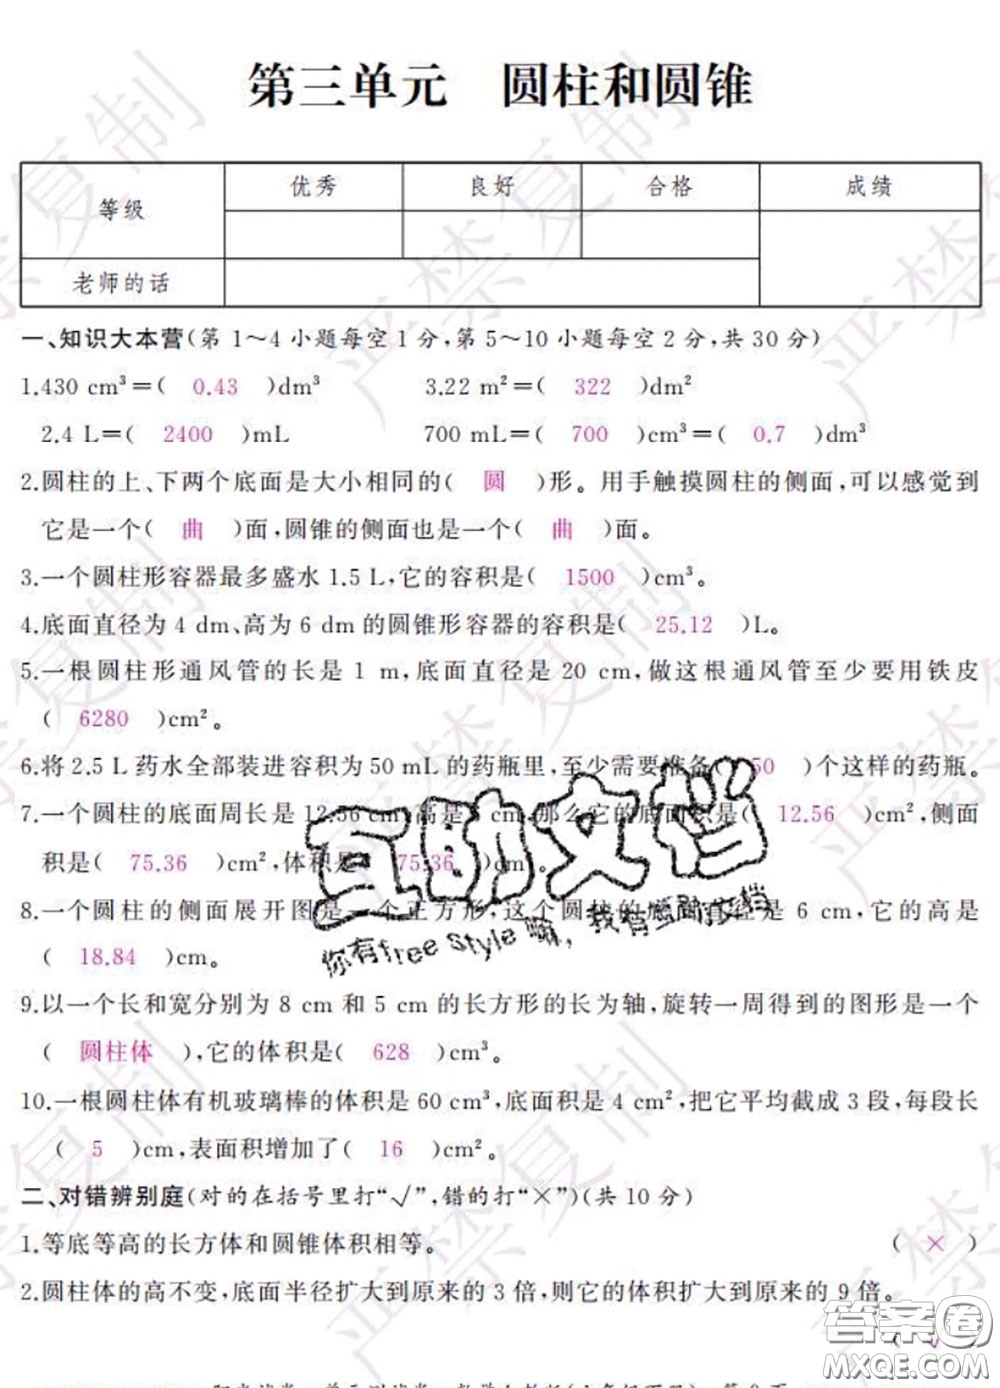 第三单元 圆柱和圆锥
等级 优秀 良好 合格 成绩
老师的话
一、知识大本营(第 1～4 小题每空 1 分,第 5～10 小题每空 2 分,共 30 分)
1.430 cm³=( 0.43 )dm³ 3.22 m²=( 322 )dm²
2.4 L=( 2400 )mL 700 mL=( 700 )cm³=( 0.7 )dm³
2.圆柱的上、下两个底面是大小相同的( 圆 )形。用手触摸圆柱的侧面,可以感觉到
它是一个( 曲 )面,圆锥的侧面也是一个( 曲 )面。
3.一个圆柱形容器最多盛水 1.5 L,它的容积是( 1500 )cm³。
4.底面直径为 4 dm、高为 6 dm 的圆锥形容器的容积是( 25.12 )L。
5.一根圆柱形通风管的长是 1 m,底面直径是 20 cm,做这根通风管至少要用铁皮
( 6280 )cm²。
6.将 2.5 L 药水全部装进容积为 50 mL 的药瓶里,至少需要准备( 50 )个这样的药瓶。
7.一个圆柱的底面周长是 12.56 cm,高是 cm,那么它的底面积是( 12.56 )cm²,侧面
积是( 75.36 )cm²,体积是( 75.36 )cm³。
8.一个圆柱的侧面展开图是一个正方形,这个圆柱的底面直径是 6 cm,它的高是
( 18.84 )cm。
9.以一个长和宽分别为 8 cm 和 5 cm 的长方形的长为轴,旋转一周得到的图形是一个
( 圆柱体 ),它的体积是( 628 )cm³。
10.一根圆柱体有机玻璃棒的体积是 60 cm³,底面积是 4 cm²,把它平均截成 3 段,每段长
( 5 )cm,表面积增加了( 16 )cm²。
二、对错辨别庭(对的在括号里打“√”,错的打“×”)(共 10 分)
1.等底等高的长方体和圆锥体积相等。 ( × )
2.圆柱体的高不变,底面半径扩大到原来的 3 倍,则它的体积扩大到原来的 9 倍。
( √ )
互助文档
你有free style嘛，我有互助文档
答案圈
MXQE.COM
严禁复制